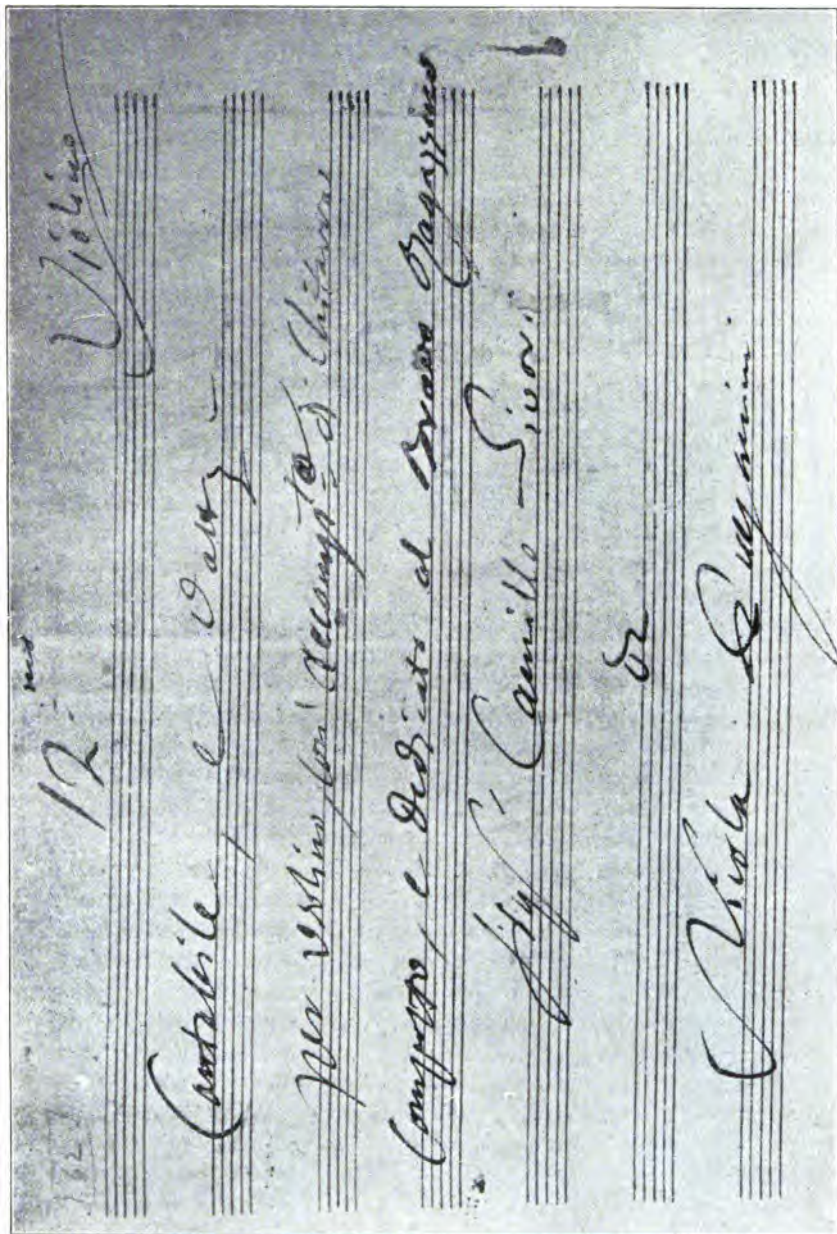 Violino
12.mo
Cantabile, e Valtz
per Violino, con accompto di Chitarra
Composto, e Dedicato al Bravo Ragazzino
Sigr Camillo Sivori.
Da
Nicola Paganini